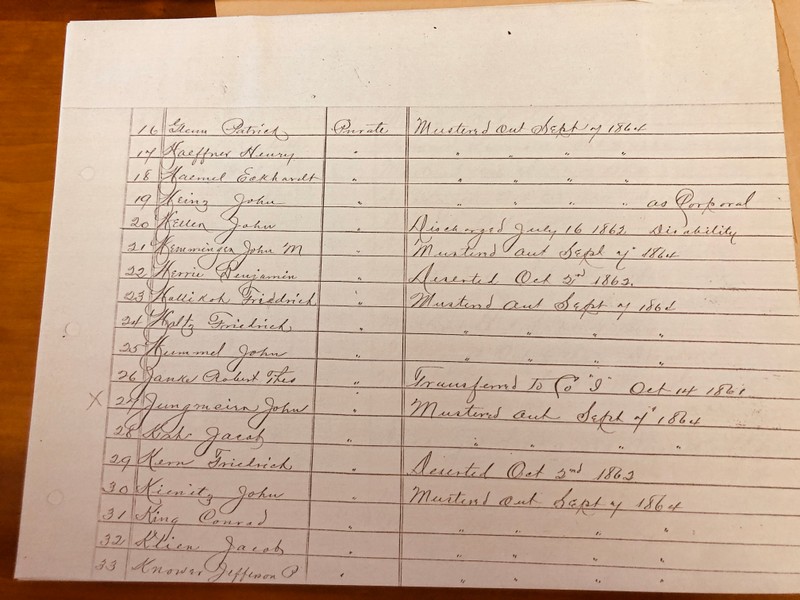 16 Glenn Patrick Private Mustered out Sept 7 1864
17 Haeffner Henry " " " " "
18 Haemel Eckhardt " " " " "
19 Heinz John " " " " " as Corporal
20 John " Discharged July 16 1862 Disability
21 Hemminger John M " Mustered out Sept 7 1864
22 Herrie Benjamin " Deserted Oct 2nd 1862.
23 Friedrich " Mustered out Sept 7 1864
24 Holtz Friedrich " " " " "
25 Hummel John " " " " "
26 Janke Robert Theo " Transferred to Co "I" Oct 14 1861
X 27 John " Mustered out Sept 7" 1864
28 Jacob " " " " "
29 Kern Friedrich " Deserted Oct 2nd 1862
30 Kienitz John " Mustered out Sept 7 1864
31 King Conrad " " " " "
32 Klien Jacob " " " " "
33 Knower Jefferson P " " " " "